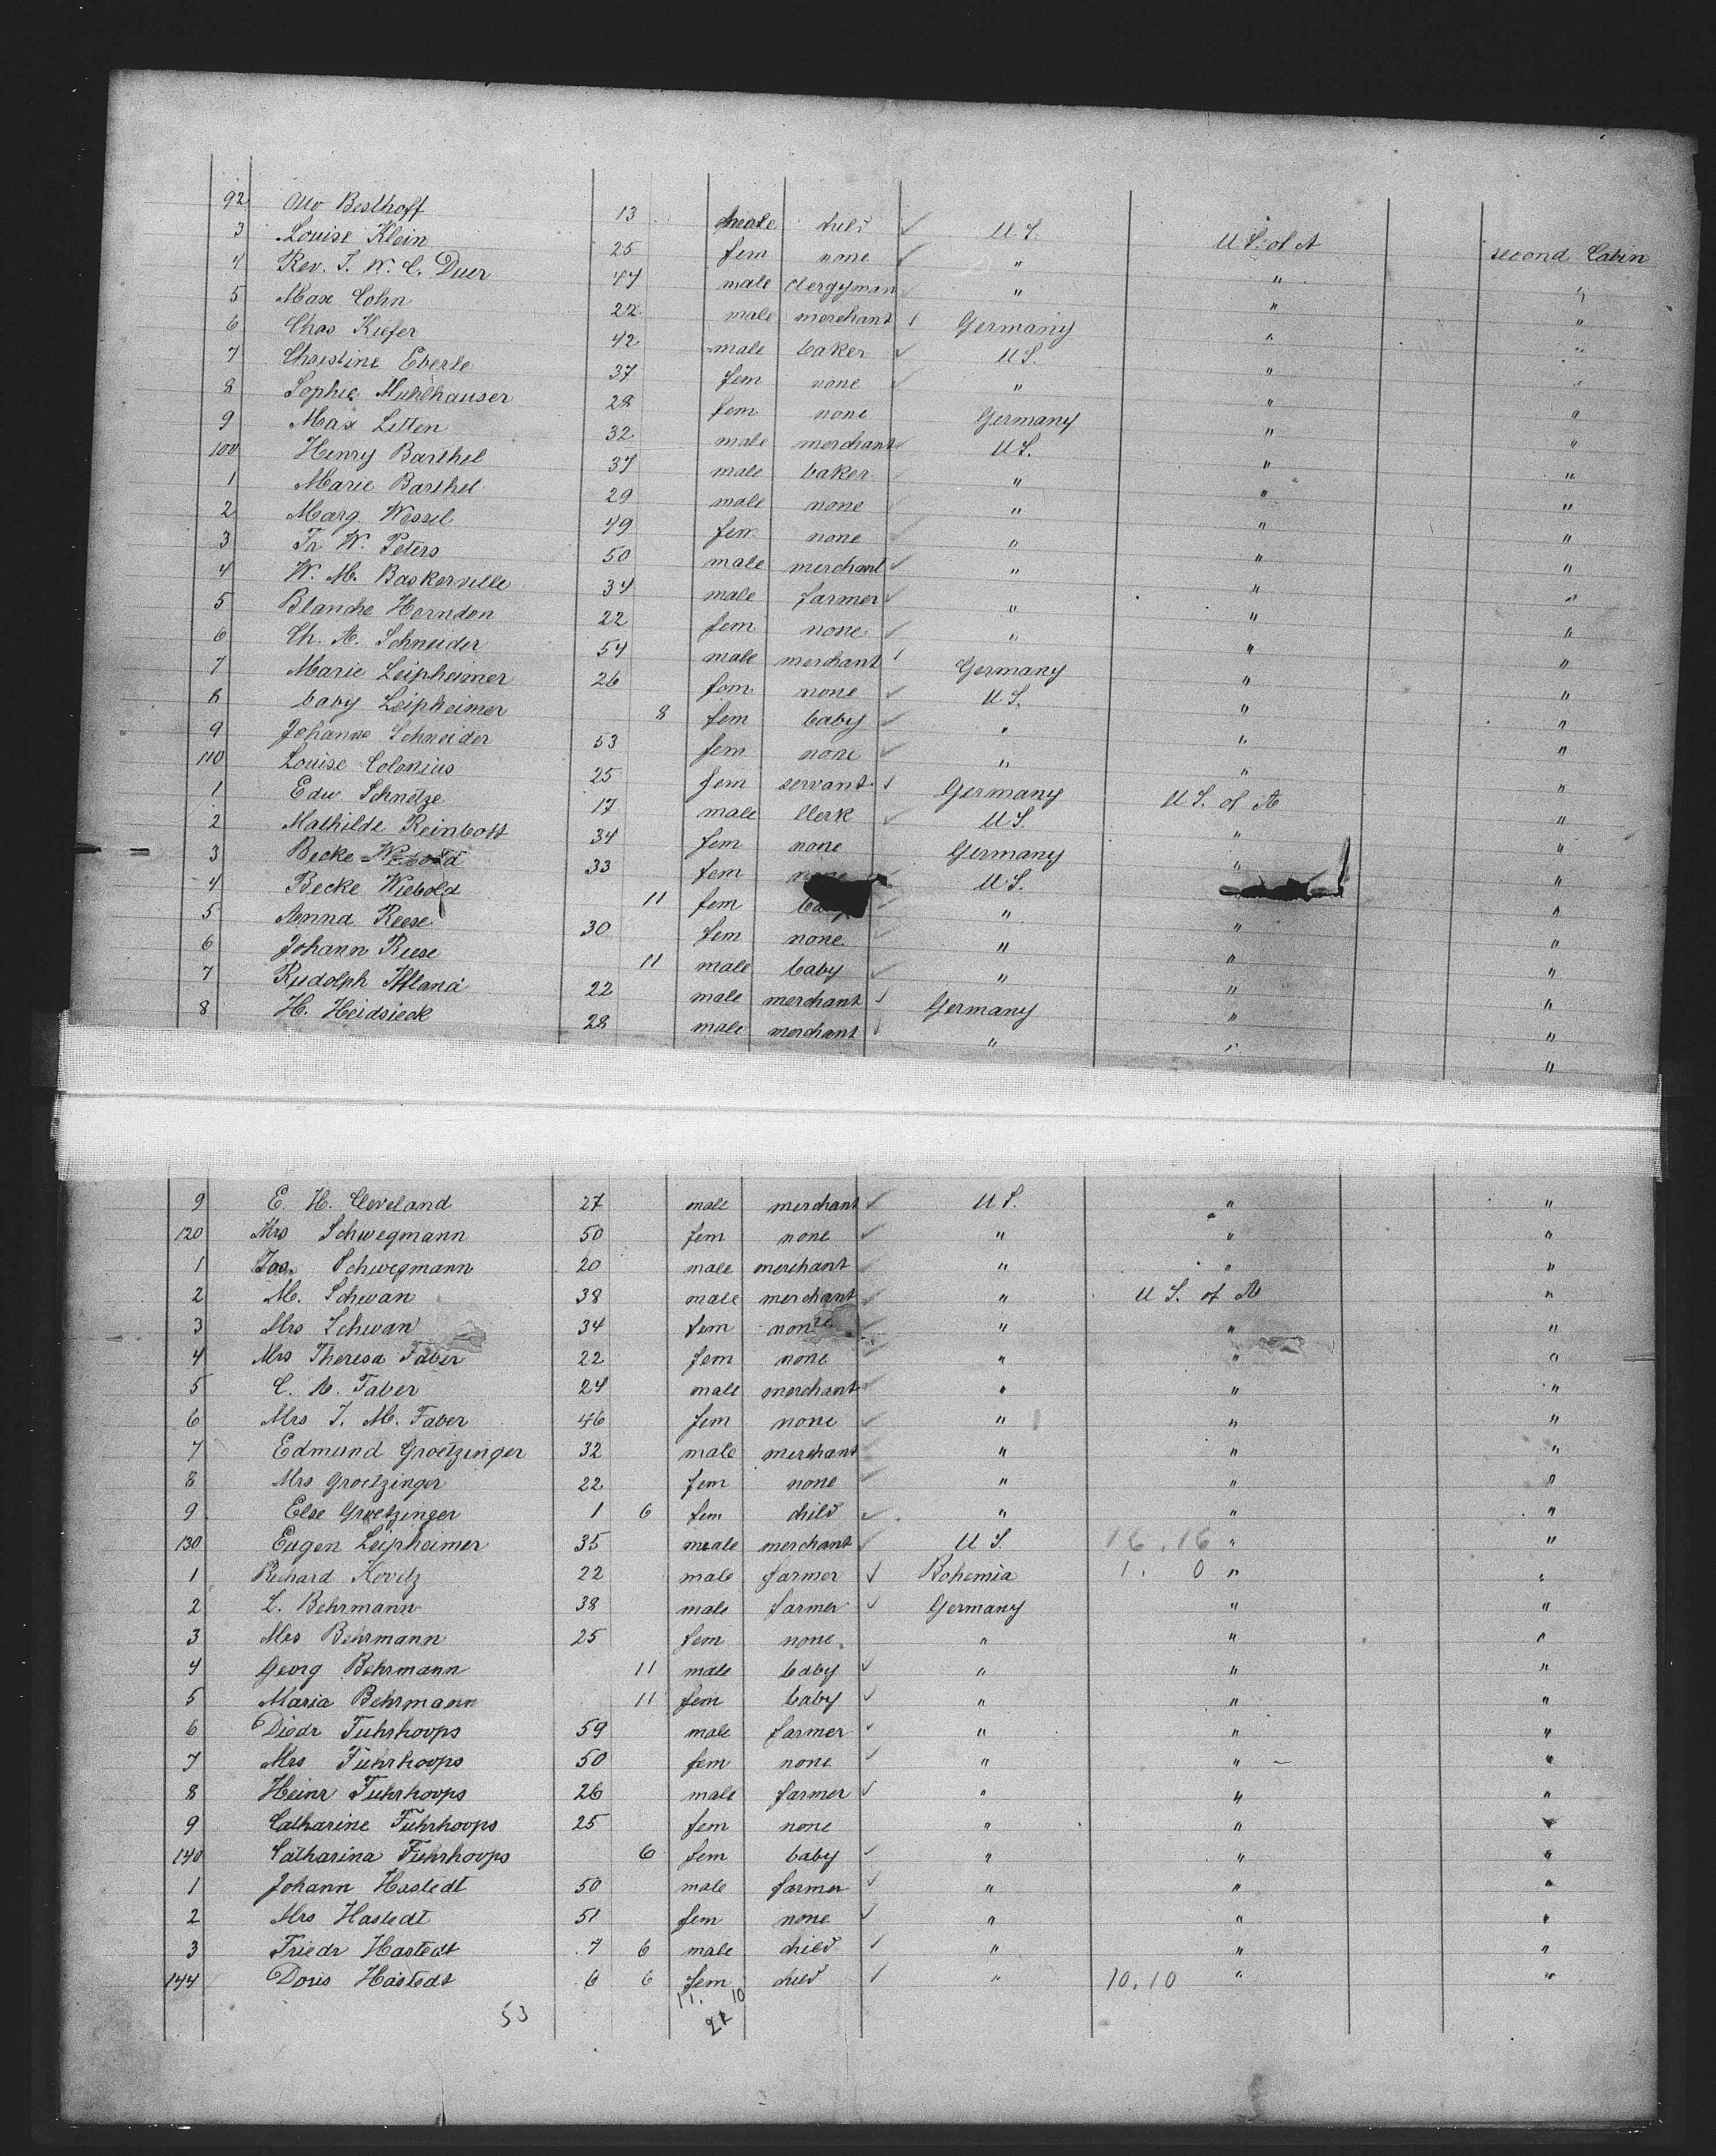 92 Otto Besthoff 13 male child ✓ U.S. U.S. of A second Cabin
3 Louise Klein 25 fem none ✓ " " "
4 Rev. J. W. C. Duer 44 male clergyman ✓ " " "
5 Max Cohn 22 male merchant ✓ Germany " "
6 Chas Kiefer 42 male baker ✓ U.S. " "
7 Christine Eberle 37 fem none ✓ " " "
8 Sophie Muhlhauser 28 fem none Germany " "
9 Max Litten 32 male merchant ✓ U.S. " "
100 Henry Barthel 37 male baker ✓ " " "
1 Marie Barthel 29 male none ✓ " " "
2 Marg Wessel 49 fem none ✓ " " "
3 Fr W. Peters 50 male merchant ✓ " " "
4 W. M. Baskerville 34 male farmer ✓ " " "
5 Blanche Horndon 22 fem none ✓ " " "
6 Ch. A. Schneider 54 male merchant ✓ Germany " "
7 Marie Leipheimer 26 fem none ✓ U.S. " "
8 baby Leipheimer 8 fem baby ✓ " " "
9 Johanne Schneider 53 fem none ✓ " " "
110 Louise Colonius 25 fem servant ✓ Germany U.S. of A "
1 Edw Schnetze 17 male Clerk ✓ U.S. " "
2 Mathilde Reinbott 34 fem none Germany " "
3 Becke Wiebold 33 fem none ✓ U.S. " "
4 Becke Wiebold 11 fem ✓ " " "
5 Anna Reese 30 fem none ✓ " " "
6 Johann Reese 11 male baby ✓ " " "
7 Rudolph Iffland 22 male merchant ✓ Germany " "
8 H. Heidsieck 28 male merchant ✓ " " "
9 E. H. Cleveland 27 male merchant ✓ U.S. " "
120 Mrs Schwegmann 50 fem none ✓ " " "
1 Jas. Schwegmann 20 male merchant ✓ " " "
2 M. Schwan 38 male merchant ✓ " U.S. of A "
3 Mrs Schwan 34 fem none ✓ " " "
4 Mrs Theresa Faber 22 fem none ✓ " " "
5 C. A. Faber 24 male merchant ✓ " " "
6 Mrs J. M. Faber 46 fem none ✓ " " "
7 Edmund Groetzinger 32 male merchant ✓ " " "
8 Mrs Groetzinger 22 fem none ✓ " " "
9 Else Groetzinger 1 6 fem child ✓ " " "
130 Eugen Leipheimer 35 male merchant ✓ U.S. 16.16 " "
1 Richard Kovitz 22 male farmer ✓ Bohemia 1. 0 " "
2 L. Behrmann 38 male farmer ✓ Germany " "
3 Mrs Behrmann 25 fem none " " "
4 Georg Behrmann 11 male baby ✓ " " "
5 Maria Behrmann 11 fem baby ✓ " " "
6 Diedr Fuhrhoops 59 male farmer ✓ " " "
7 Mrs Fuhrhoops 50 fem none ✓ " " "
8 Heinr Fuhrhoops 26 male farmer ✓ " " "
9 Catharine Fuhrhoops 25 fem none " " "
140 Catharina Fuhrhoops 6 fem baby ✓ " " "
1 Johann Hastedt 50 male farmer ✓ " " "
2 Mrs Hastedt 51 fem none ✓ " " "
3 Friedr Hastedt 7 6 male child ✓ " " "
144 Doris Hastedt 6 6 fem child ✓ " 10.10 " "
11. 10
53